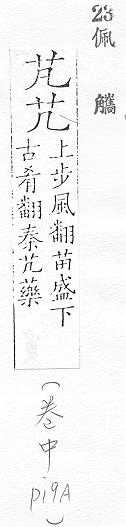 23 佩觿
芃艽
上步風翻苗盛下
古肴翻秦艽藥
(卷中 P19A)